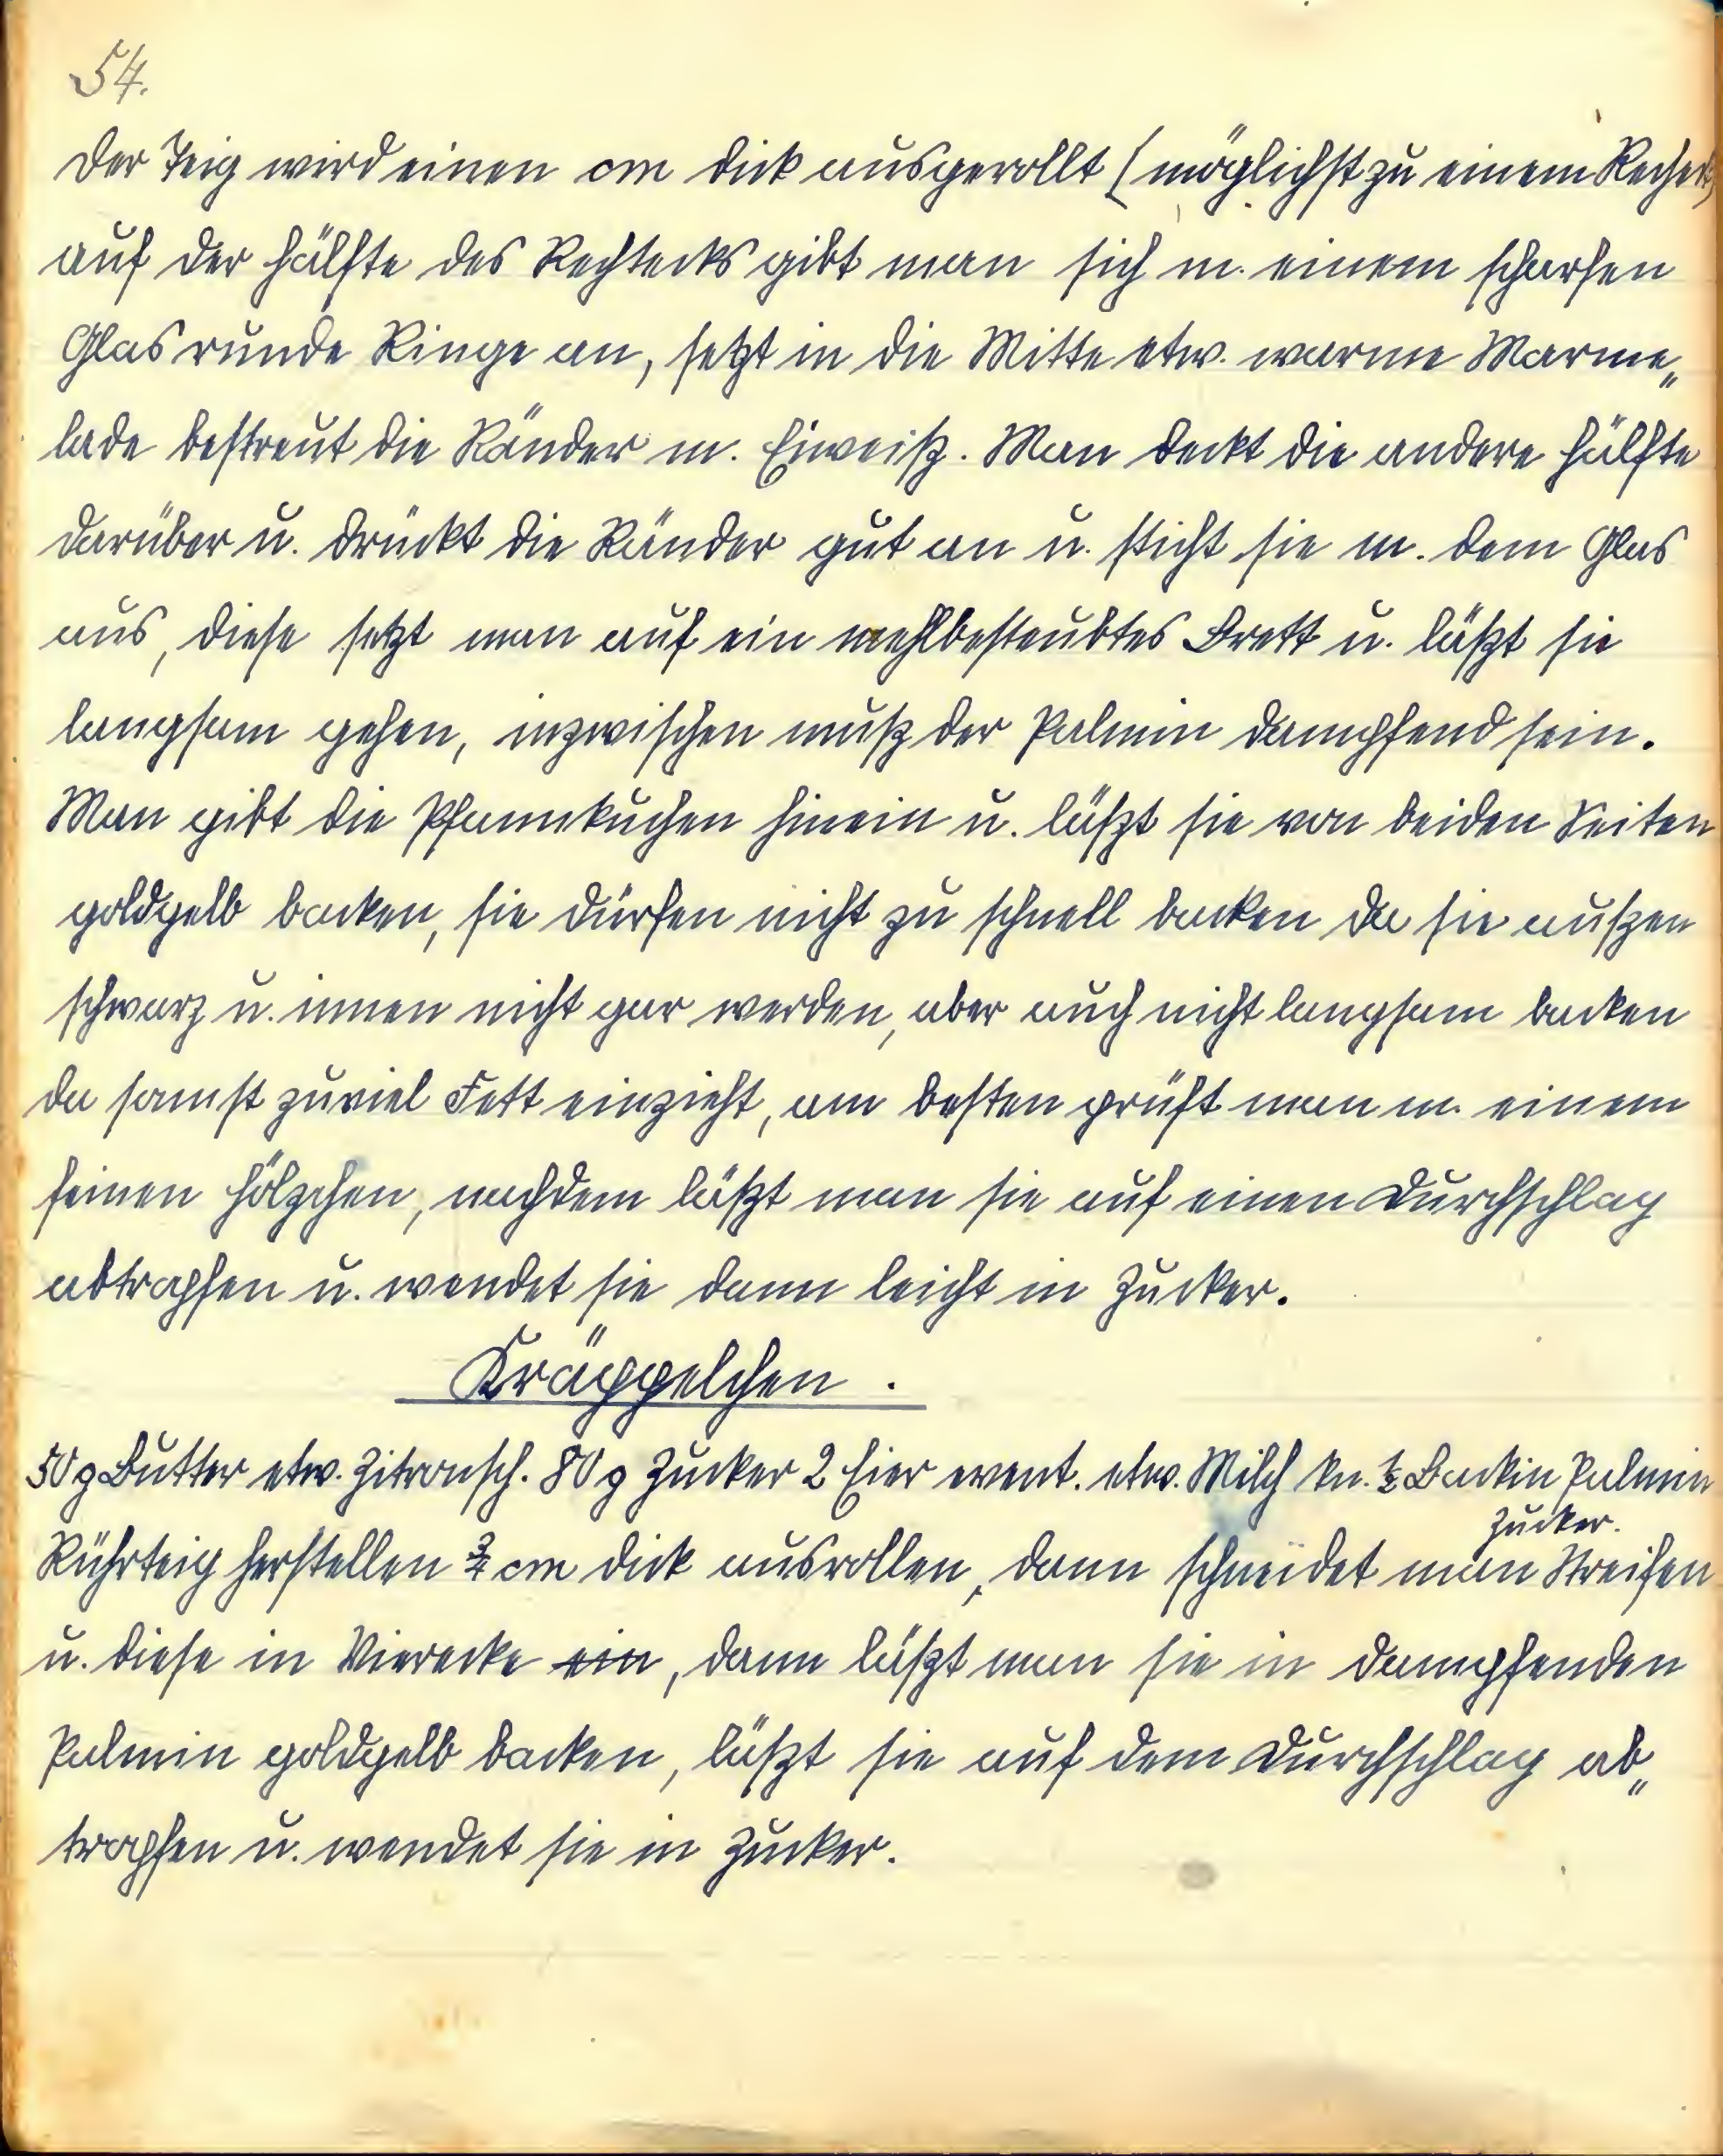 54.
Der Teig wird einen cm dick ausgerollt (möglichst zu einem Rechek)
auf der Hälfte des Rechtecks gibt man sich m. einem scharfen
Glas runde Ringe an, setzt in die Mitte etw. warme Marme„
lade bestreut die Ränder m. Eiweiß. Man deckt die andere Hälfte
darüber u. drückt die Ränder gut an u. sticht sie m. dem Glas
aus, diese setzt man auf ein mehlbesteubtes Brett u. läßt sie
langsam gehen, inzwischen muß der Palmin dampfend sein.
Man gibt die Pfannkuchen hinein u. läßt sie von beiden Seiten
goldgelb backen, sie dürfen nicht zu schnell backen da sie außen
schwarz u. innen nicht gar werden, aber auch nicht langsam backen
da sonst zuviel Fett einzieht, am besten prüft man m. einem
feinen Hölzchen, nachdem läßt man sie auf einen Durchschlag
abtropfen u. wendet sie dann leicht in Zucker.
Kräppelchen.
50 g Butter etw. Zitronsch. 80 g Zucker 2 Eier event. etw. Milch kn. ½ Backin Palmin
Zucker.
Rührteig herstellen ¾ cm dick ausrollen, dann schneidet man Streifen
u. diese in Vierecke ein, dann läßt man sie in dampfenden
Palmin goldgelb backen, läßt sie auf dem Durchschlag ab„
tropfen u. wendet sie in Zucker.